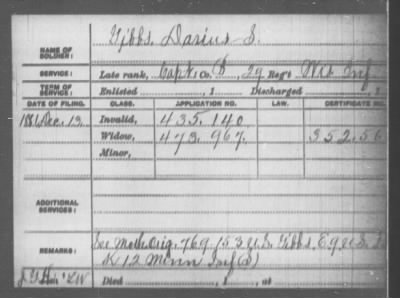 Gibbs, Darius S.
NAME OF SOLDIER:
SERVICE: Late rank, Capt. Co. D, 29 Reg't Wis Inf
TERM OF SERVICE: Enlisted , 1 Discharged , 1
DATE OF FILING. CLASS. APPLICATION NO. LAW. CERTIFICATE NO.
1881, Dec. 13. Invalid, 435.140
Widow, 473.967 352.56
Minor,
ADDITIONAL SERVICES:
REMARKS: See Moth Orig. 769.153 Gibbs,
K 12 Minn Inf (S)
Died , 1 , at